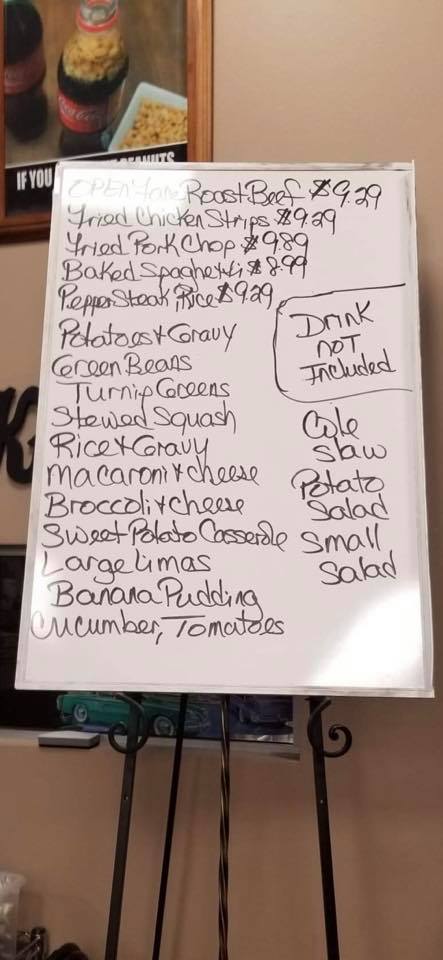 IF YOU
PEANUTS
OPEN Face Roast Beef $9.29
Fried Chicken Strips $9.29
Fried Pork Chop $989
Baked Spaghetti $8.99
Pepper Steak, Rice $9.29
Drink
not
Included
Potatoes & Gravy
Green Beans
Turnip Greens
Stewed Squash
Rice & Gravy
Macaroni & cheese
Broccoli & cheese
Sweet Potato Casserole
Large Limas
Banana Pudding
Cucumber, Tomatoes
Cole
slaw
Potato
Salad
Small
Salad